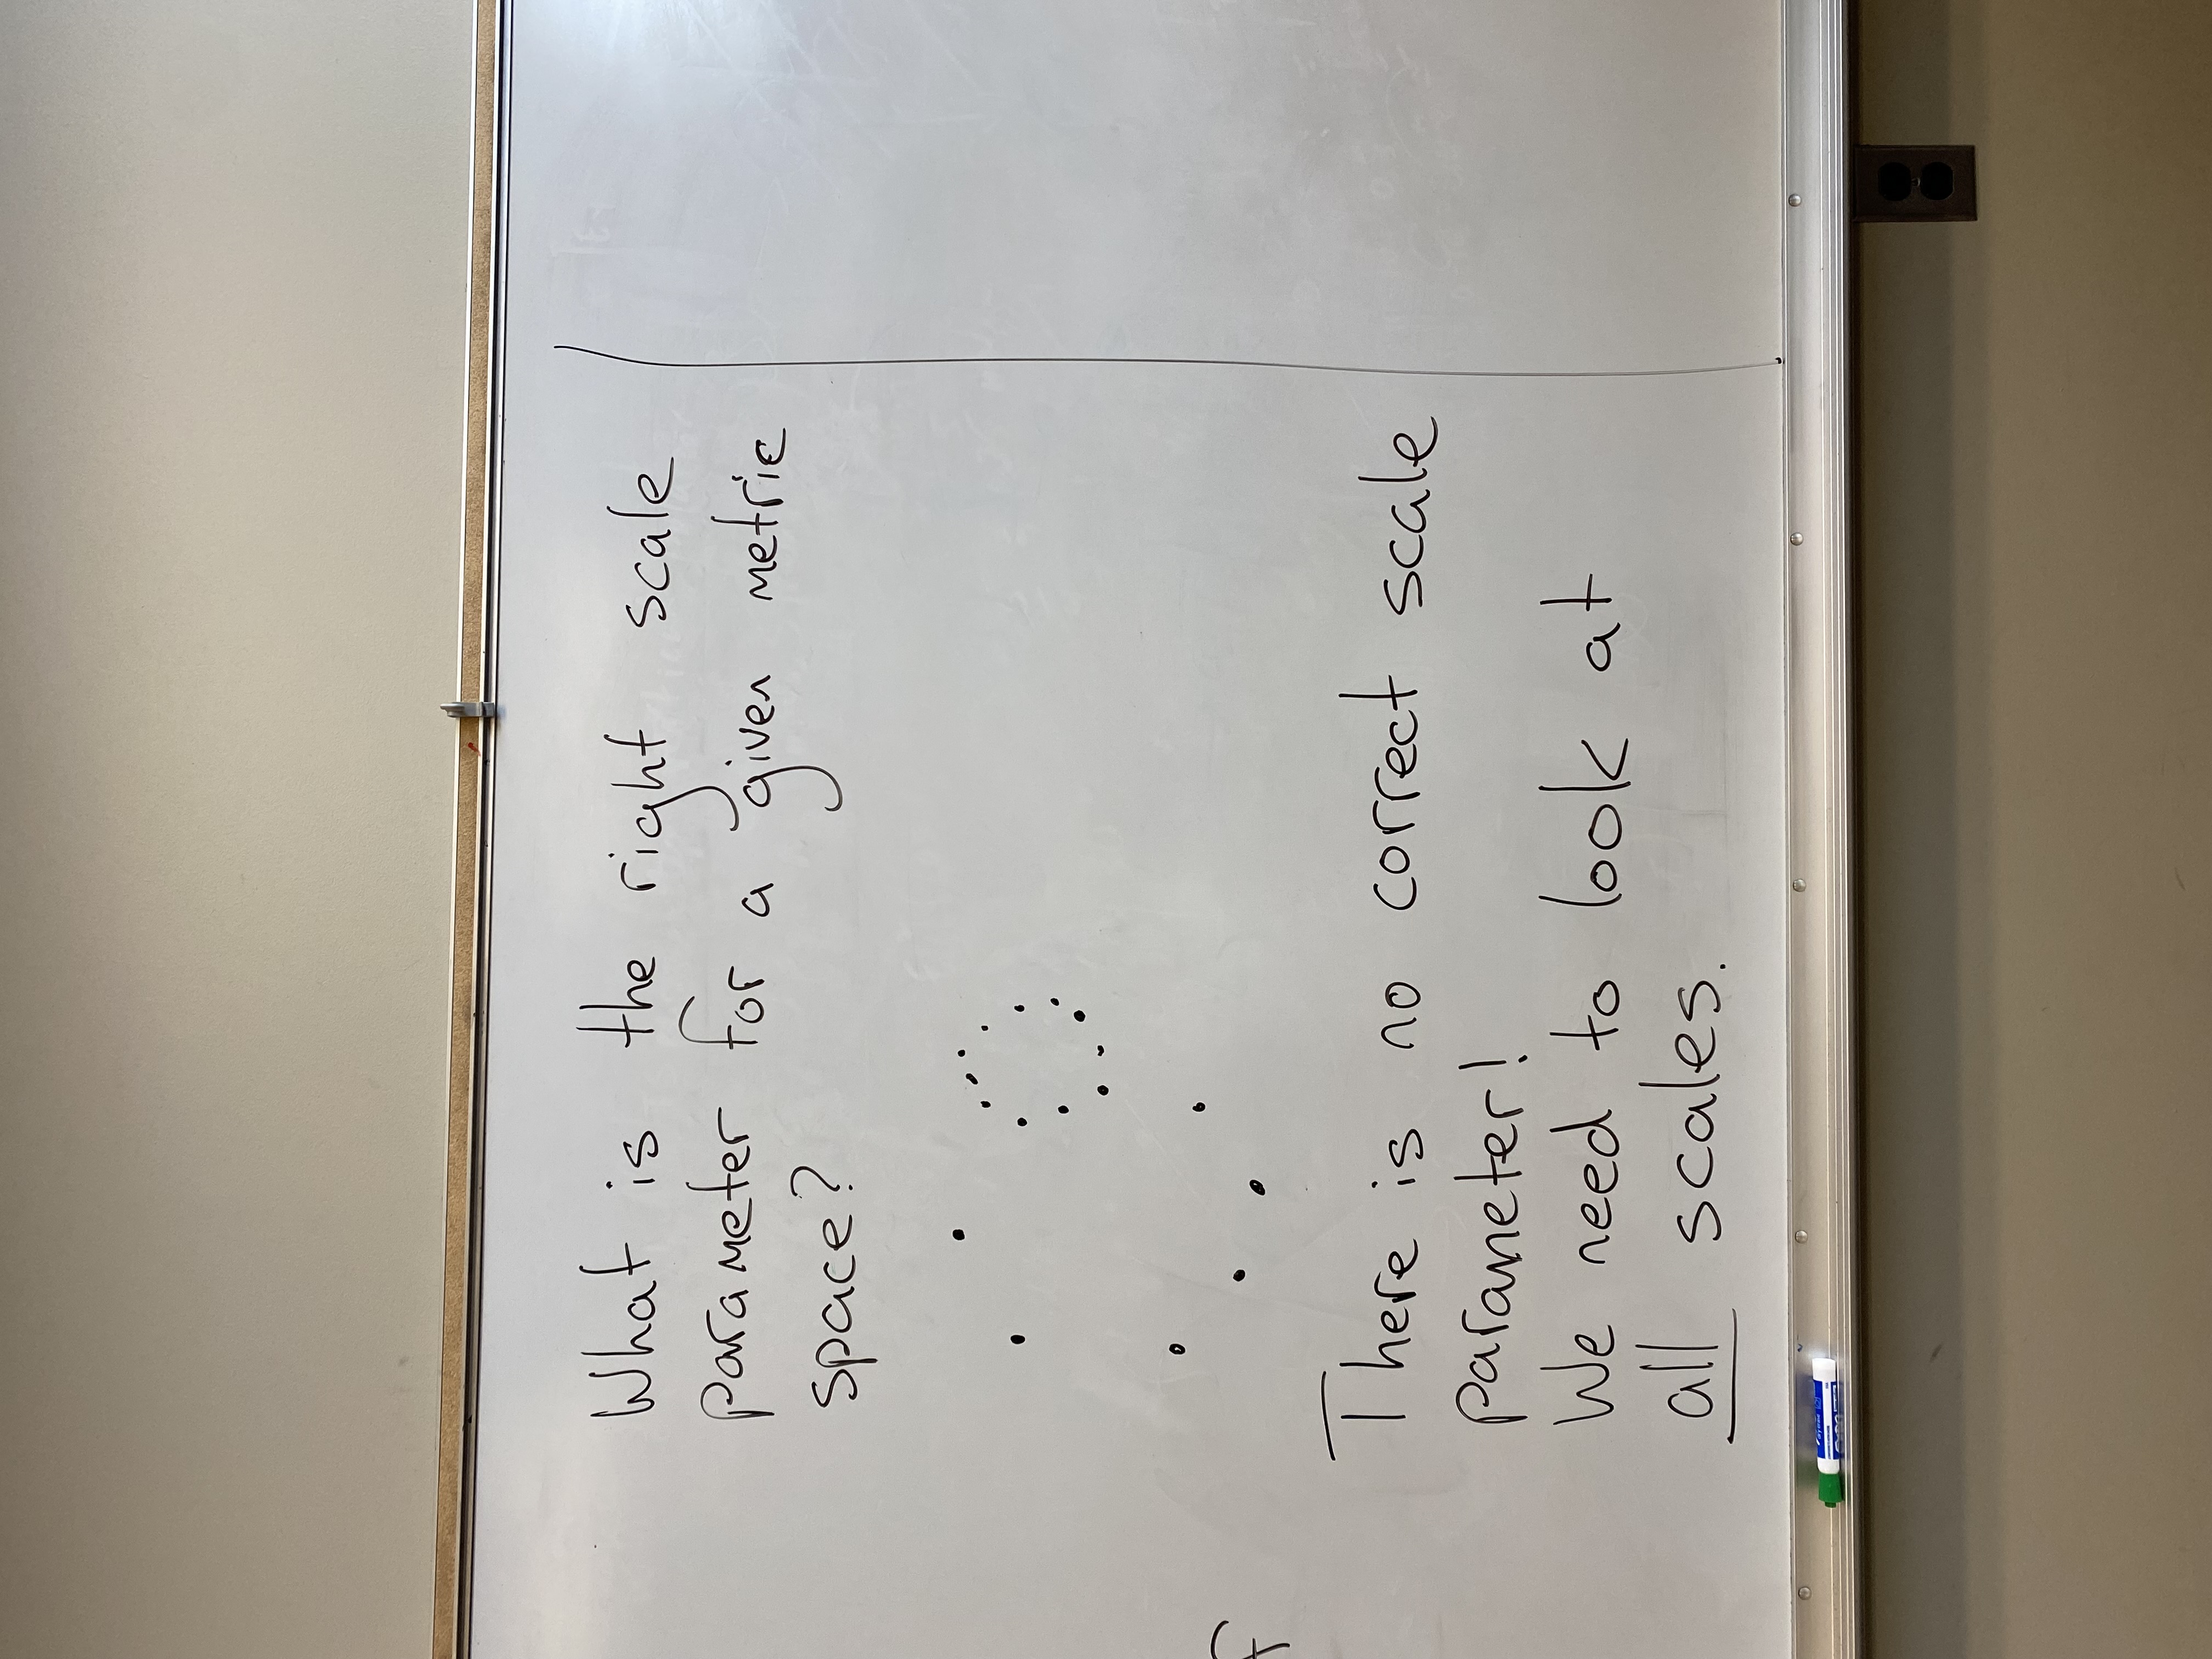 What is the right scale
parameter for a given metric
space?
f
There is no correct scale
parameter!
We need to look at
all scales.